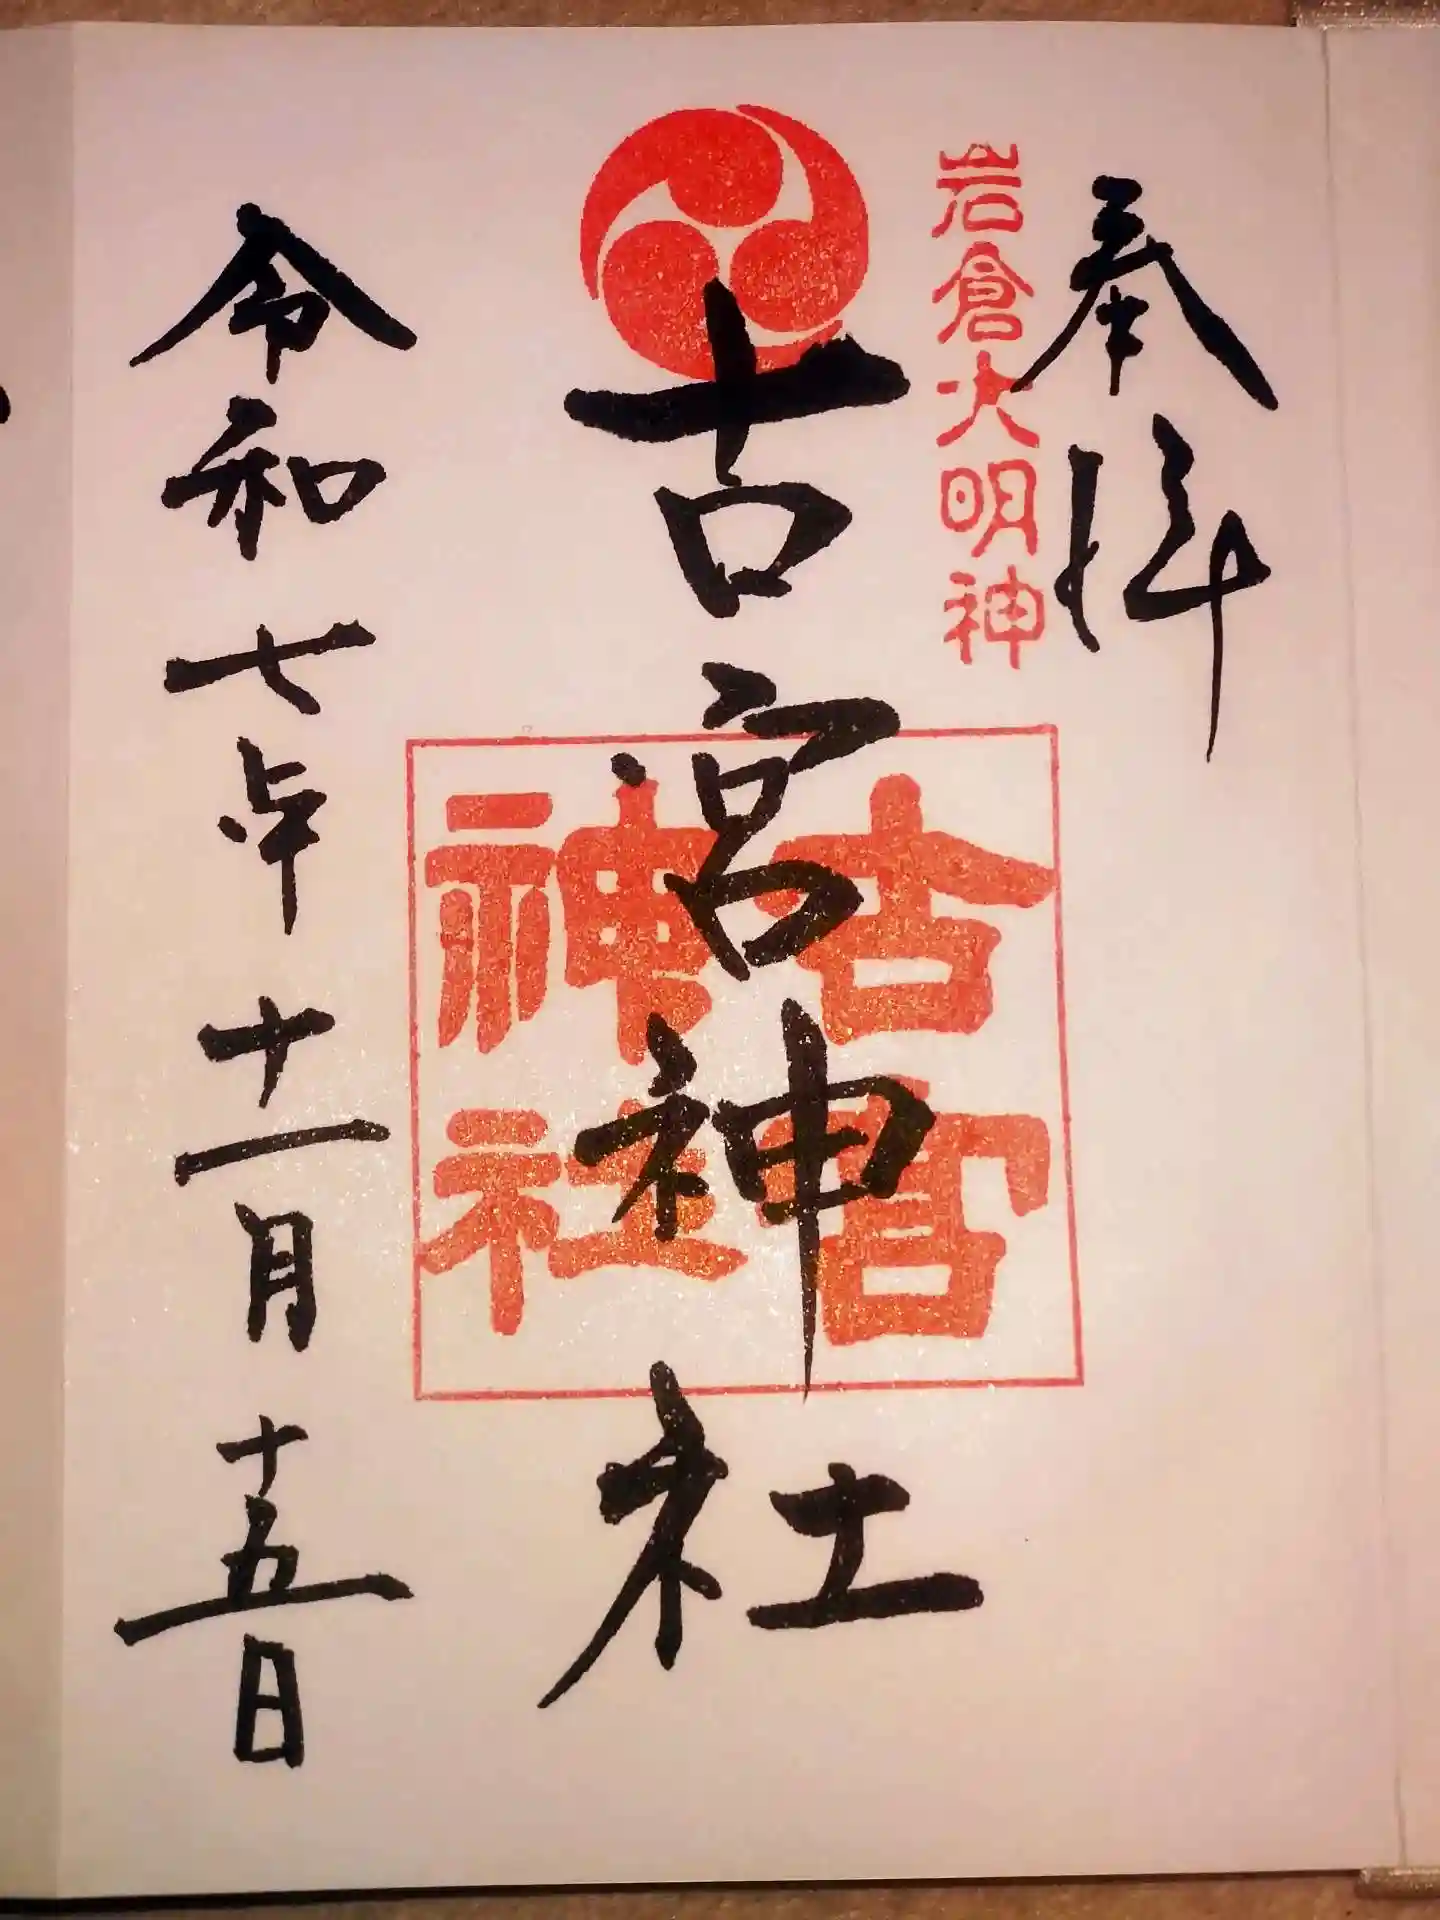 奉拝
岩倉大明神
古宮神社
古宮
神社
令和七年十一月十五日